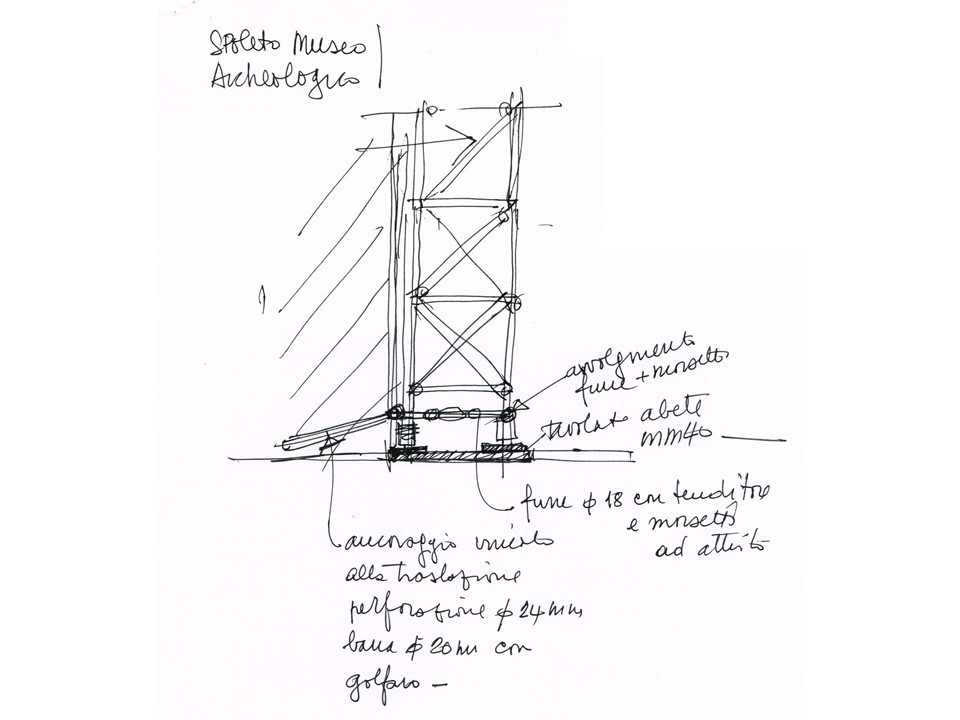 Spoleto Museo
Archeologico
avvolgimento
fune + morsetto
tavolato abete
mm 40
fune ϕ 18 con tenditore
e morsetti
ad attrito
ancoraggio vincolo
alla traslazione
perforazione ϕ 24 mm
barra ϕ 20 mm con
golfaro –